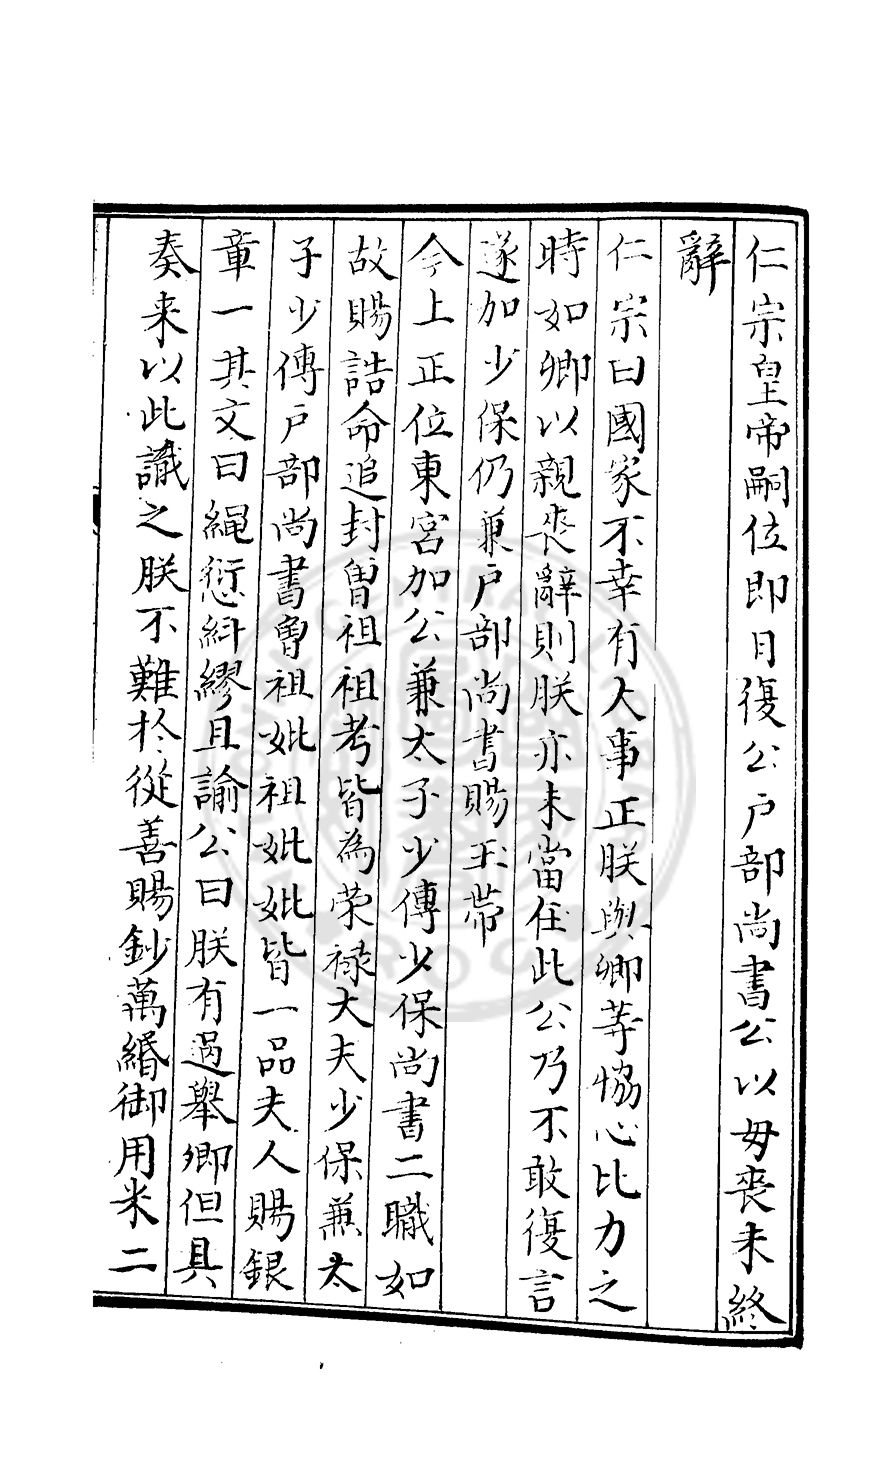 仁宗皇帝嗣位即日復公户部尚書公以毋喪未終
辭
仁宗曰國家不幸有大事正朕與卿等恊心比力之
時如卿以親喪辭則朕亦未當任此公乃不敢復言
遂加少保仍兼户部尚書賜玉帯
今上正位東宮加公兼太子少傅少保尚書二職如
故賜誥命追封曽祖祖考皆為荣禄大夫少保兼太
子少傅户部尚書曽祖妣祖妣妣皆一品夫人賜銀
章一其文曰繩愆糾繆且諭公曰朕有過舉卿但具
奏来以此識之朕不難於從善賜鈔萬緡御用米二